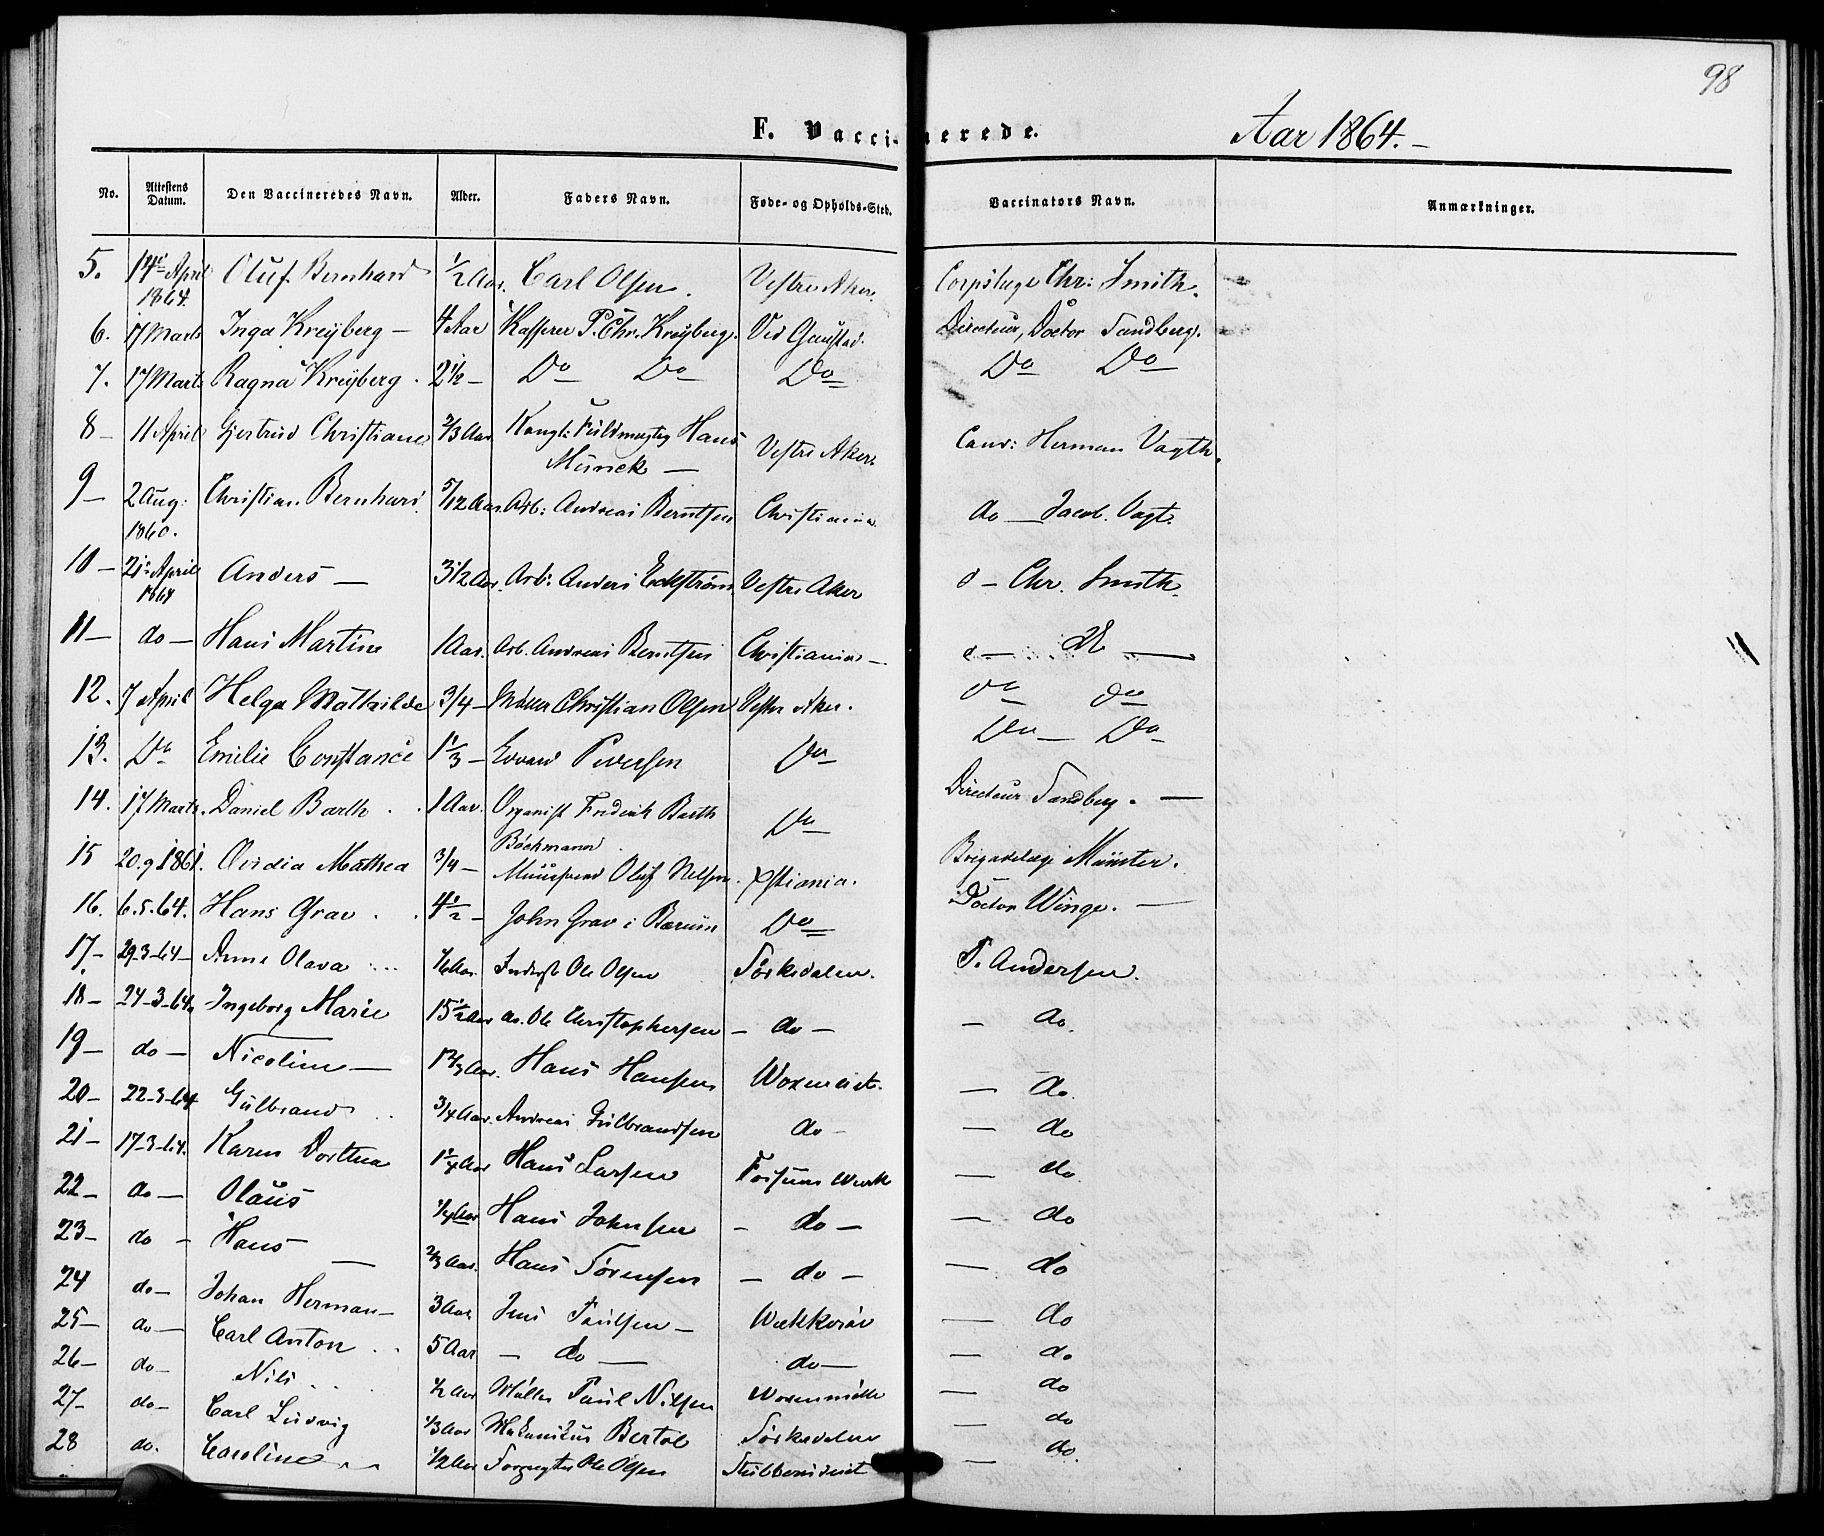 98
F. Vaccinerede. Aar 1864.
No. Attestens Datum. Den Vaccineredes Navn. Alder. Faders Navn. Føde- og Opholds-Sted. Vaccinators Navn. Anmærkninger.
5. 14de April 1864. Oluf Bernhard 1/2 Aar. Carl Olsen. Vestre Aker. Corpslæge Chr: Smith.
6. 17 Marts Inga Kreÿberg – 4 Aar Kasserer P. Chr. Kreÿberg. Ved Gaustad. Directeur, Doctor Sandberg.
7. 17 Marts Ragna Kreÿberg. 2 1/2 – Do Do Do Do Do
8 – 11 April Gjertrud Christiane 2/3 Aar Hans Munck – Vestre Aker Cand: Herman Vogth.
9 – 2 Aug: 1860. Christian Bernhard 5/12 Aar. Arb: Andreas Berntsen Christiania do – Jacob Vogt.
10 – 21 April 1864 Anders – 3 1/2 Aar. Arb: Anders Eckstrøm Vestre Aker d – Chr. Smith.
11 – do – Hans Martin 1 Aar. Arb. Andreas Berntsen Christiania –
12. 7 April Helga Mathilde 3/4 – Christian Olsen Vestre Aker. do do
13. Do Emilie Constance 1 1/3 – Edvard Pedersen Do Do – Do
14. 17 Marts. Daniel Barth . . 1 Aar. Organist Fredrik Barth Böckmann. Do Directeur Sandberg. –
15 20.9 1861. Ovidia Mathea 3/4 – Muursvend Oluf Nelsen. Xstiania. Brigadelæge Münster.
16. 6.5.64. Hans Grav . . 4 1/2 – John Grav i Bærum Do Doctor Winge. –
17 – 29-3-64 – Anne Olava 1/6 Aar. Inderst Ole Olsen Sörkedalen. P. Andersen.
18 – 24-3-64. Ingeborg Marie 15 1/2 Aar do. Ole Christophersen – do – – do.
19 – do – Nicoline – 1 2/3 Aar. Hans Hansen – do.
20 – 22-3-64 Gulbrand . . 3/4 Aar. Andreas Gulbrandsen do – – do
21 – 17-3-64. Karen Dorthea 1 1/4 Aar Hans Larsen Fossum Værk – do
22 – do – Olaus 1/4 Aar Hans Johnsen – do – – do
23 – do – Hans – 2/3 Aar. Hans Sörensen – do – – do
24 do – Johan Herman – 3 Aar. Jens Paulsen – – do
25 – do – Carl Anton . . 5 Aar – do – do – – do
26 – do – Nils . . . 1/2 Aar Møller Paul Nilsen Voxenmölle – do
27 – do – Carl Ludvig 1/3 Aar Bertol Sörkedalen – do
28 do. Caroline 1/2 Aar Ole Olsen – do.